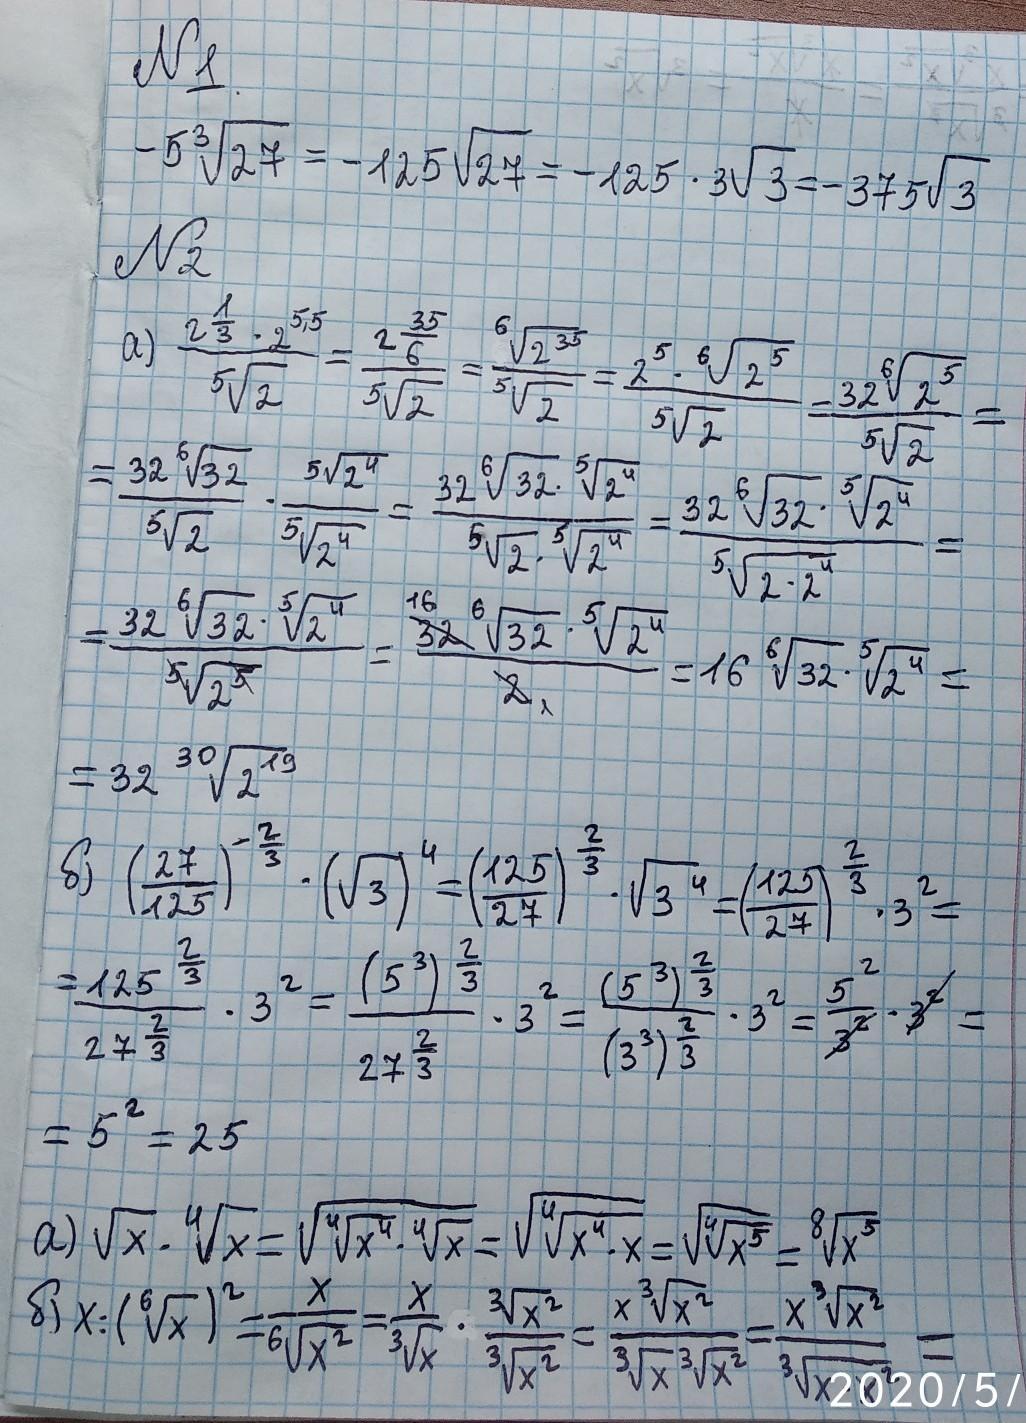 №1.
-5³√27 = -125√27 = -125 · 3√3 = -375√3
№2
а) (2^(1/3) · 2^(5,5))/(⁵√2) = (2^(35/6))/(⁵√2) = (⁶√(2^35))/(⁵√2) = (2^5 · ⁶√(2^5))/(⁵√2) = (32 ⁶√(2^5))/(⁵√2) =
= (32 ⁶√32)/(⁵√2) · (⁵√(2^4))/(⁵√(2^4)) = (32 ⁶√32 · ⁵√(2^4))/(⁵√2 · ⁵√(2^4)) = (32 ⁶√32 · ⁵√(2^4))/(⁵√(2 · 2^4)) =
= (32 ⁶√32 · ⁵√(2^4))/(⁵√(2^5)) = (16 32 ⁶√32 · ⁵√(2^4))/(2 1) = 16 ⁶√32 · ⁵√(2^4) =
= 32 ³⁰√(2^19)
б) (27/125)^(-2/3) · (√3)^4 = (125/27)^(2/3) · √(3^4) = (125/27)^(2/3) · 3^2 =
= (125^(2/3))/(27^(2/3)) · 3^2 = ((5^3)^(2/3))/(27^(2/3)) · 3^2 = ((5^3)^(2/3))/((3^3)^(2/3)) · 3^2 = (5^2)/(3^2) · 3^2 =
= 5^2 = 25
а) √x · ⁴√x = √(⁴√(x^4) · ⁴√x) = √(⁴√(x^4 · x)) = √(⁴√(x^5)) = ⁸√(x^5)
б) x : (⁶√x)^2 = x/(⁶√(x^2)) = x/(³√x) · (³√(x^2))/(³√(x^2)) = (x ³√(x^2))/(³√x ³√(x^2)) = (x ³√(x^2))/(³√(x · x^2)) =
2020/5/